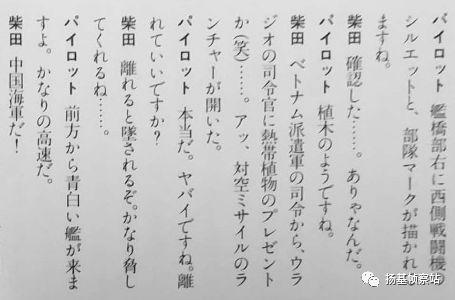 パイロット　艦橋部右に西側戦闘機の
シルエットと、部隊マークが描かれ
ますね。
柴田　確認した……。ありゃなんだ。
パイロット　植木のようですね。
柴田　ベトナム派遣軍の司令から、ウラ
ジオの司令官に熱帯植物のプレゼント
か(笑)……。アッ、対空ミサイルのラ
ンチャーが開いた。
パイロット　本当だ。ヤバイですね。離
れていいですか?
柴田　離れると墜されるぞ。かなり脅し
てくれるね……。
パイロット　前方から青白い艦が来ま
すよ。かなりの高速だ。
柴田　中国海軍だ!
扬基侦察站